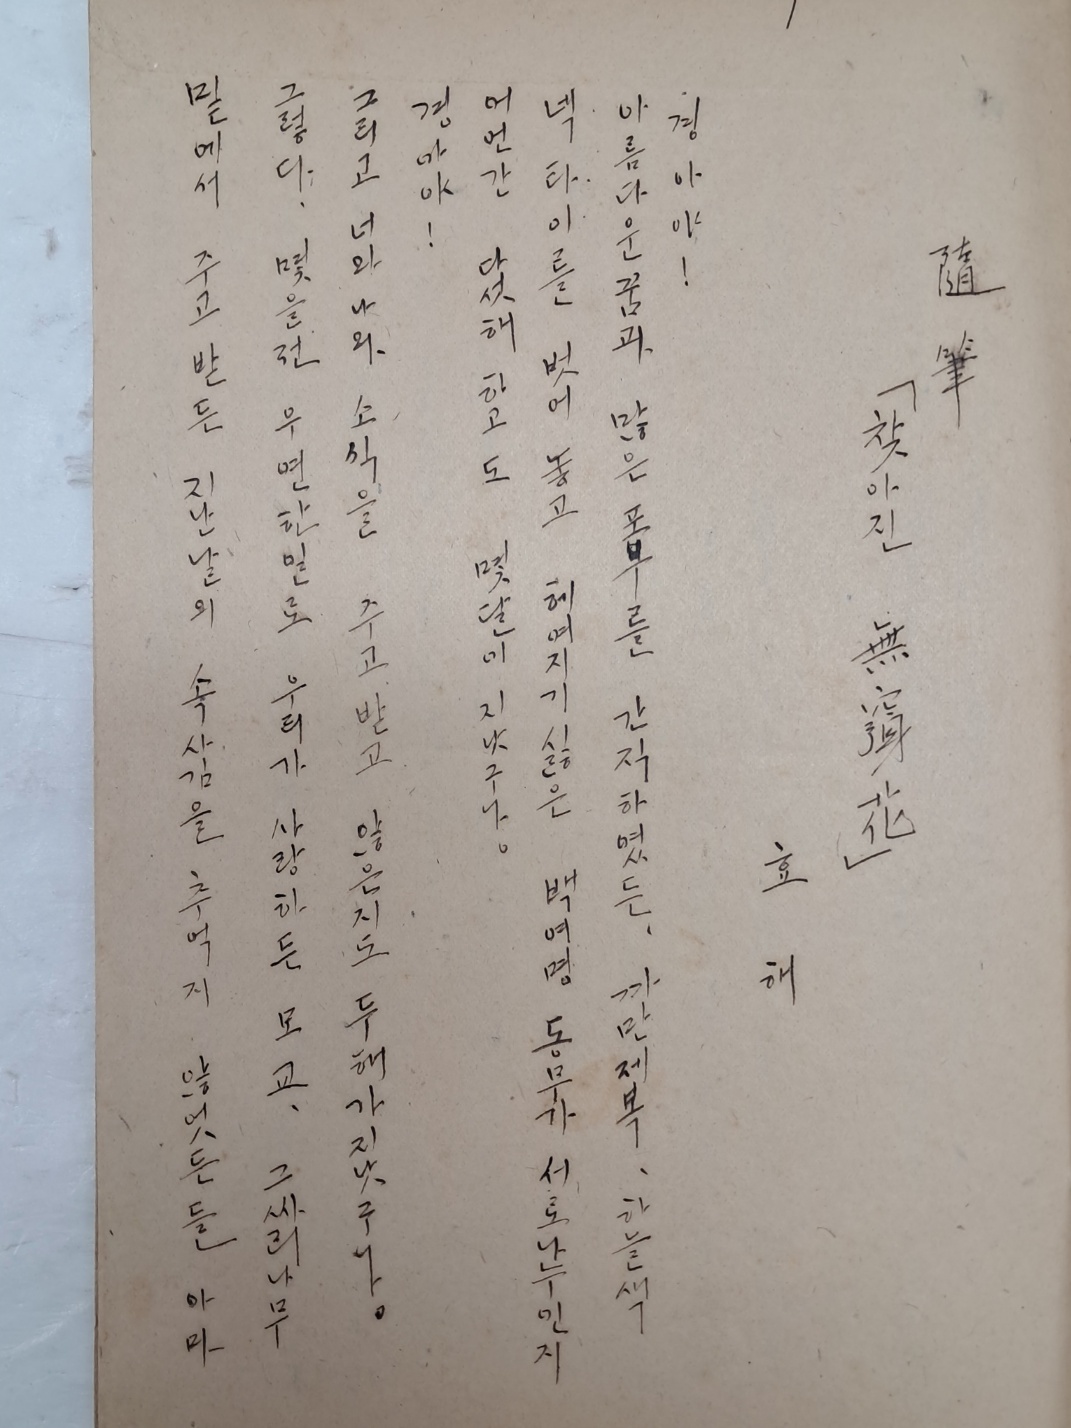 隨筆
「찾아진 無窮花」
효해
경아야!
아름다운 꿈과 많은 포부를 간직하였든、 까만제복、 하늘색
넥타이를 벗어 놓고 헤여지기 싫은 백여명 동무가 서로난우인지
어언간 닷섯해 하고도 몇달이 지낫구나。
경아야!
그리고 너와 나와 소식을 주고 받고 않은지도 두해가지낫구나。
그렇다、 몇을전 우연한일로 우리가 사랑하든 모교、 그싸리나무
밑에서 주고 받든 지난날의 속삭임을 추억지 않엇든들 아마